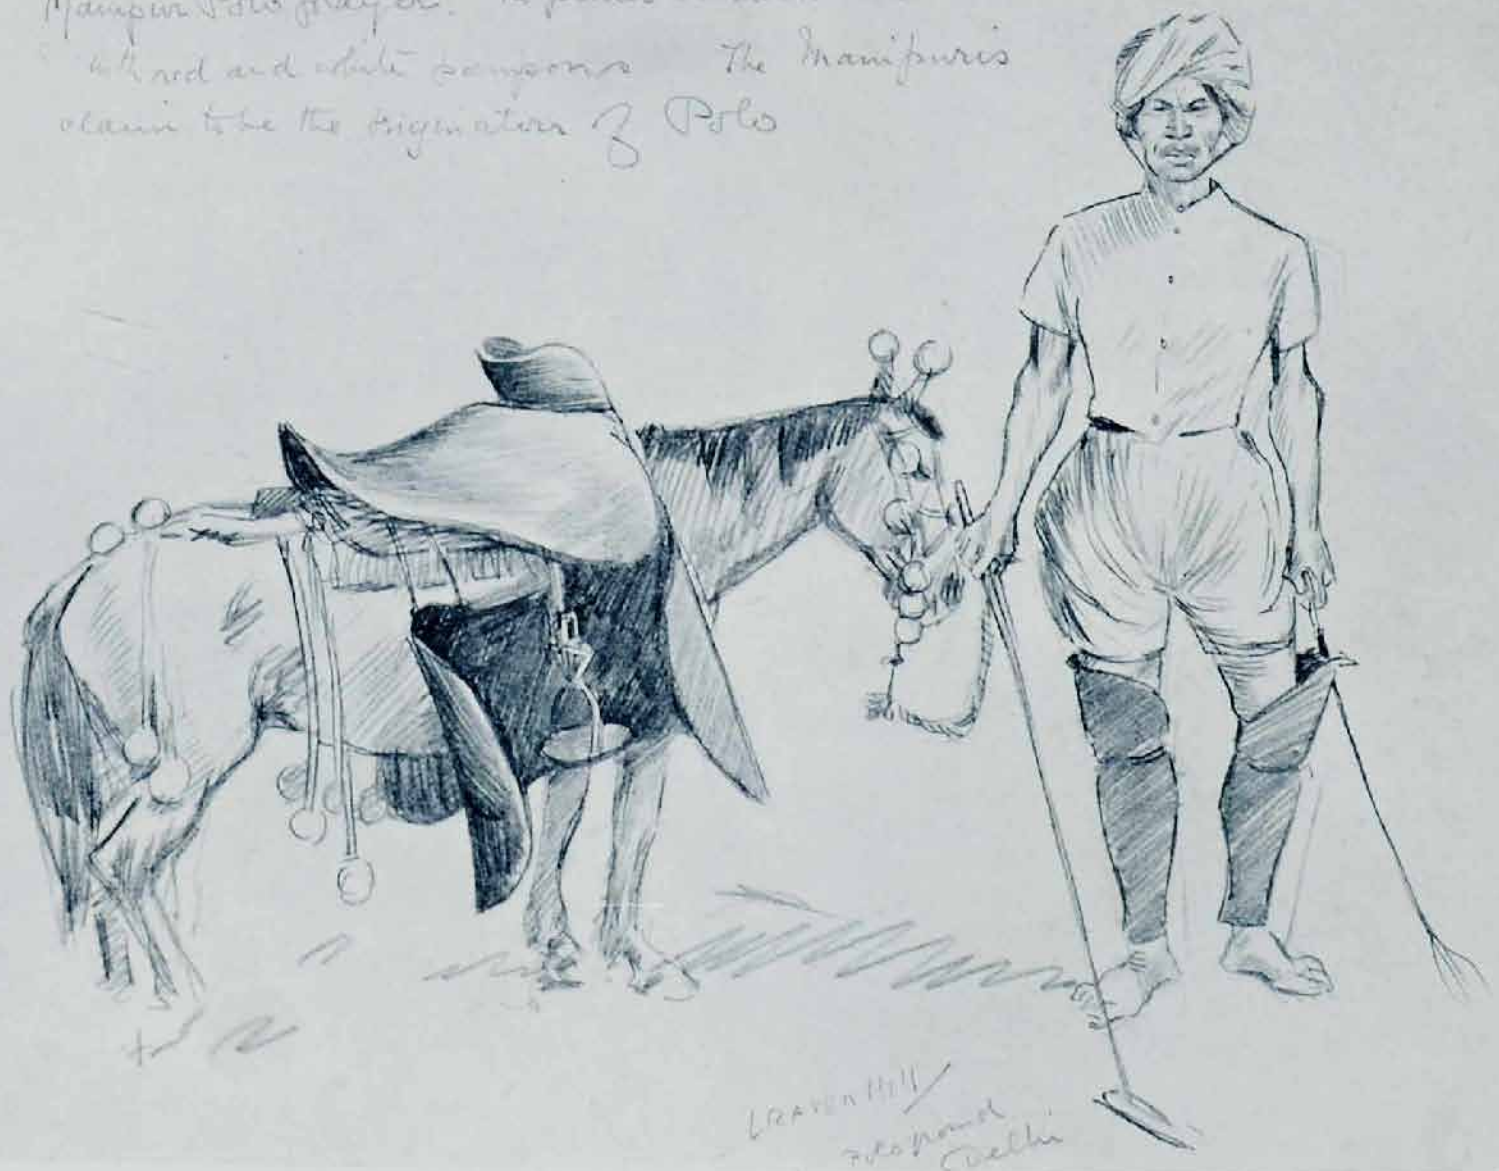 Manipur Polo player.
with red and white pompons The Manipuris
claim to be the originators of Polo
L RAVEN HILL
Polo ground
Delhi